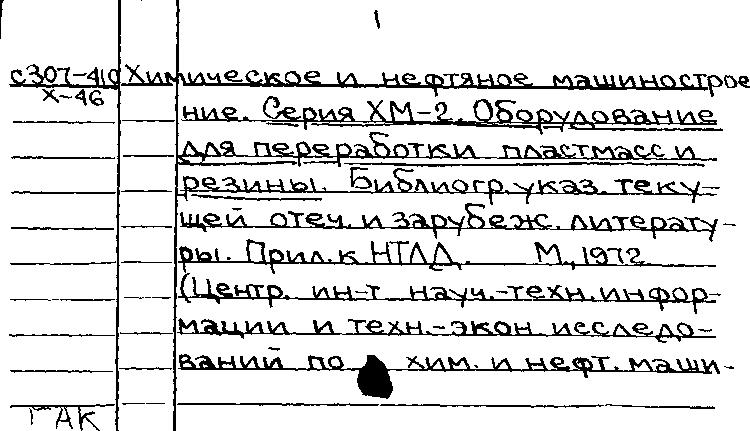 1
с307-410 Химическое и нефтяное машинострое
Х-46
ние. Серия ХМ-2. Оборудование
для переработки пластмасс и
резины. Библиогр. указ. теку-
щей отеч. и зарубеж. литерату-
ры. Прил. к НТЛД. М., 1972
(Центр. ин-т науч.-техн. инфор-
мации и техн.-экон. исследо-
ваний по хим. и нефт. маши-
ГАК